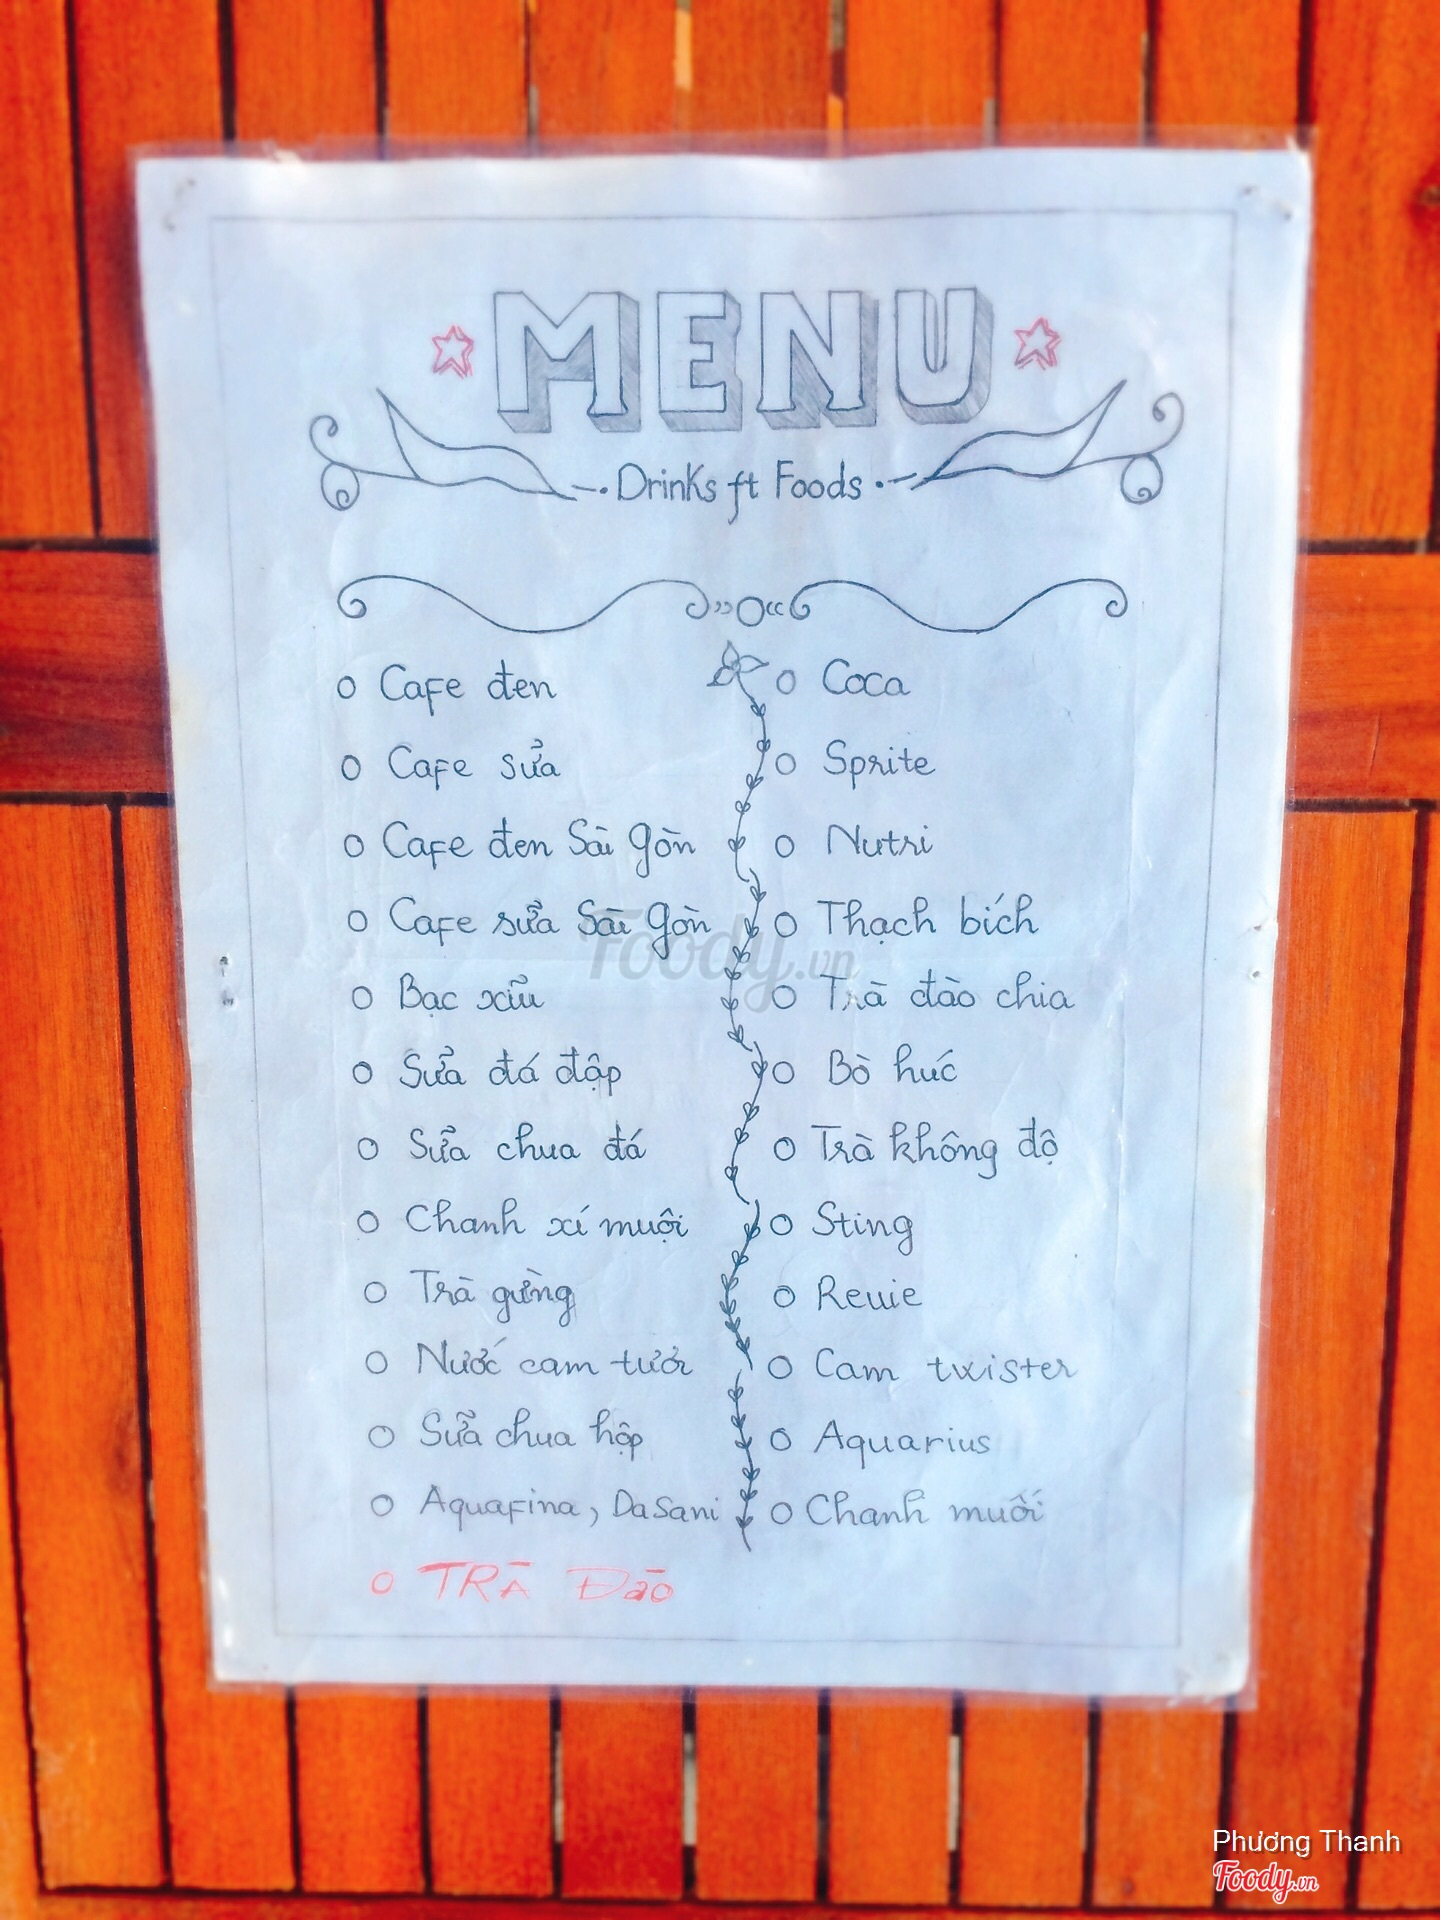 MENU
Drinks ft Foods
Cafe đen
Cafe sửa
Cafe đen Sài gòn
Cafe sửa Sài gòn
Bạc xỉu
Sửa đá đập
Sửa chua đá
Chanh xí muội
Trà gừng
Nước cam tươi
Sữa chua hộp
Aquafina, DaSani
TRÀ Đào
Coca
Sprite
Nutri
Thạch bích
Trà đào chia
Bò húc
Trà không độ
Sting
Revie
Cam twister
Aquarius
Chanh muối
Foody.vn
Phương Thanh
Foody.vn